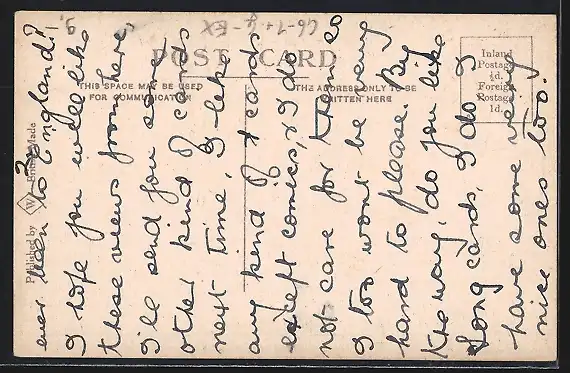 POST CARD
THIS SPACE MAY BE USED
FOR COMMUNICATION
THE ADDRESS ONLY TO BE
WRITTEN HERE
Inland
Postage
½d.
Foreign
Postage
1d.
Published by W British Made
ever been to England?
I hope you will like
these views from here,
I'le send you some
other kind of cards
next time, I like
any kind of cards
except comics, & I do
not care for them so
I too wont be very
hard to please. By
the way, do you like
Song cards, I do I
have some very
nice ones too